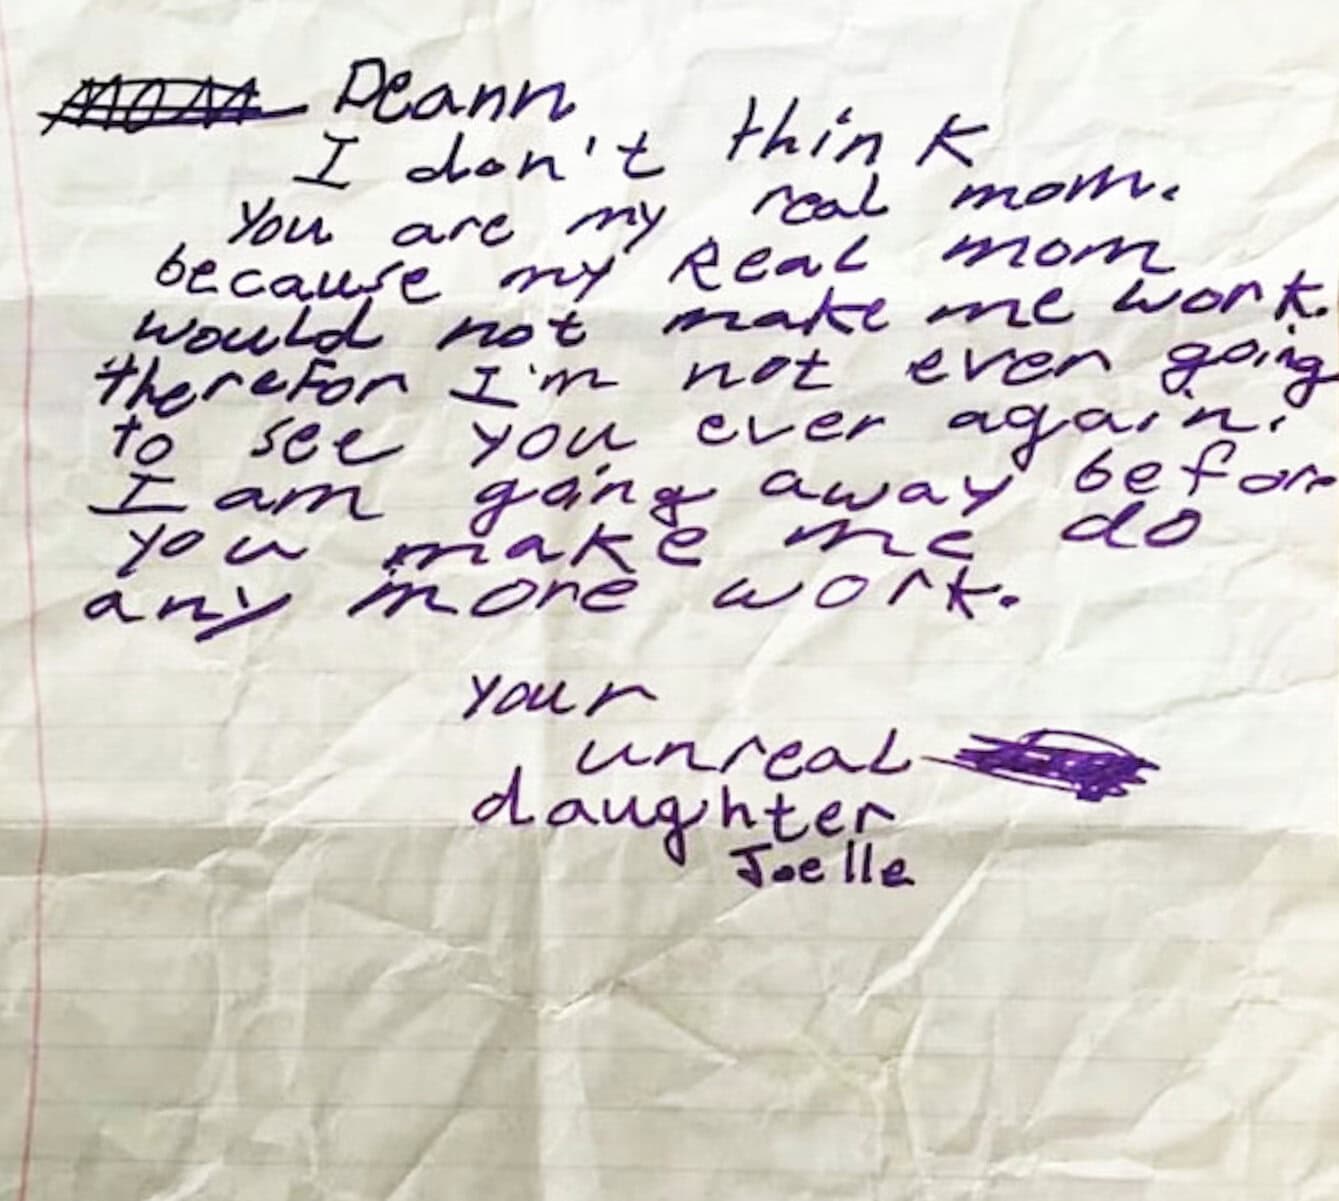 mom Deann
I don't think
You are my real mom.
because my Real mom
would not make me work.
therefor I'm not even going
to see you ever again.
I am going away before
you make me do
any more work.
your
unreal
daughter
Joelle